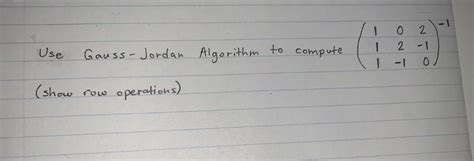 1 0 2 -1
Use Gauss-Jordan Algorithm to compute 1 2 -1
1 -1 0
(show row operations)